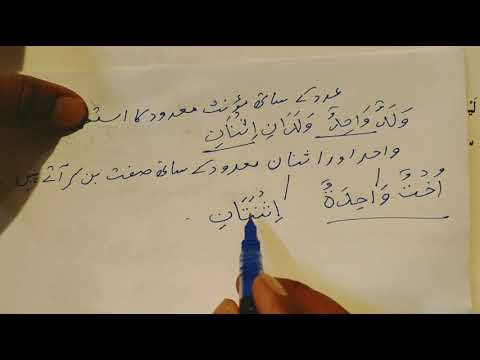 عدد کے ساتھ مؤنث معدود کا
وَلَدٌ وَاحِدٌ وَلَدَانِ اِثْنَانِ
واحد اور اثنان معدود کے ساتھ صفت بن کر آتے ہیں
اُخْتٌ وَاحِدَةٌ اِثْنَتَانِ